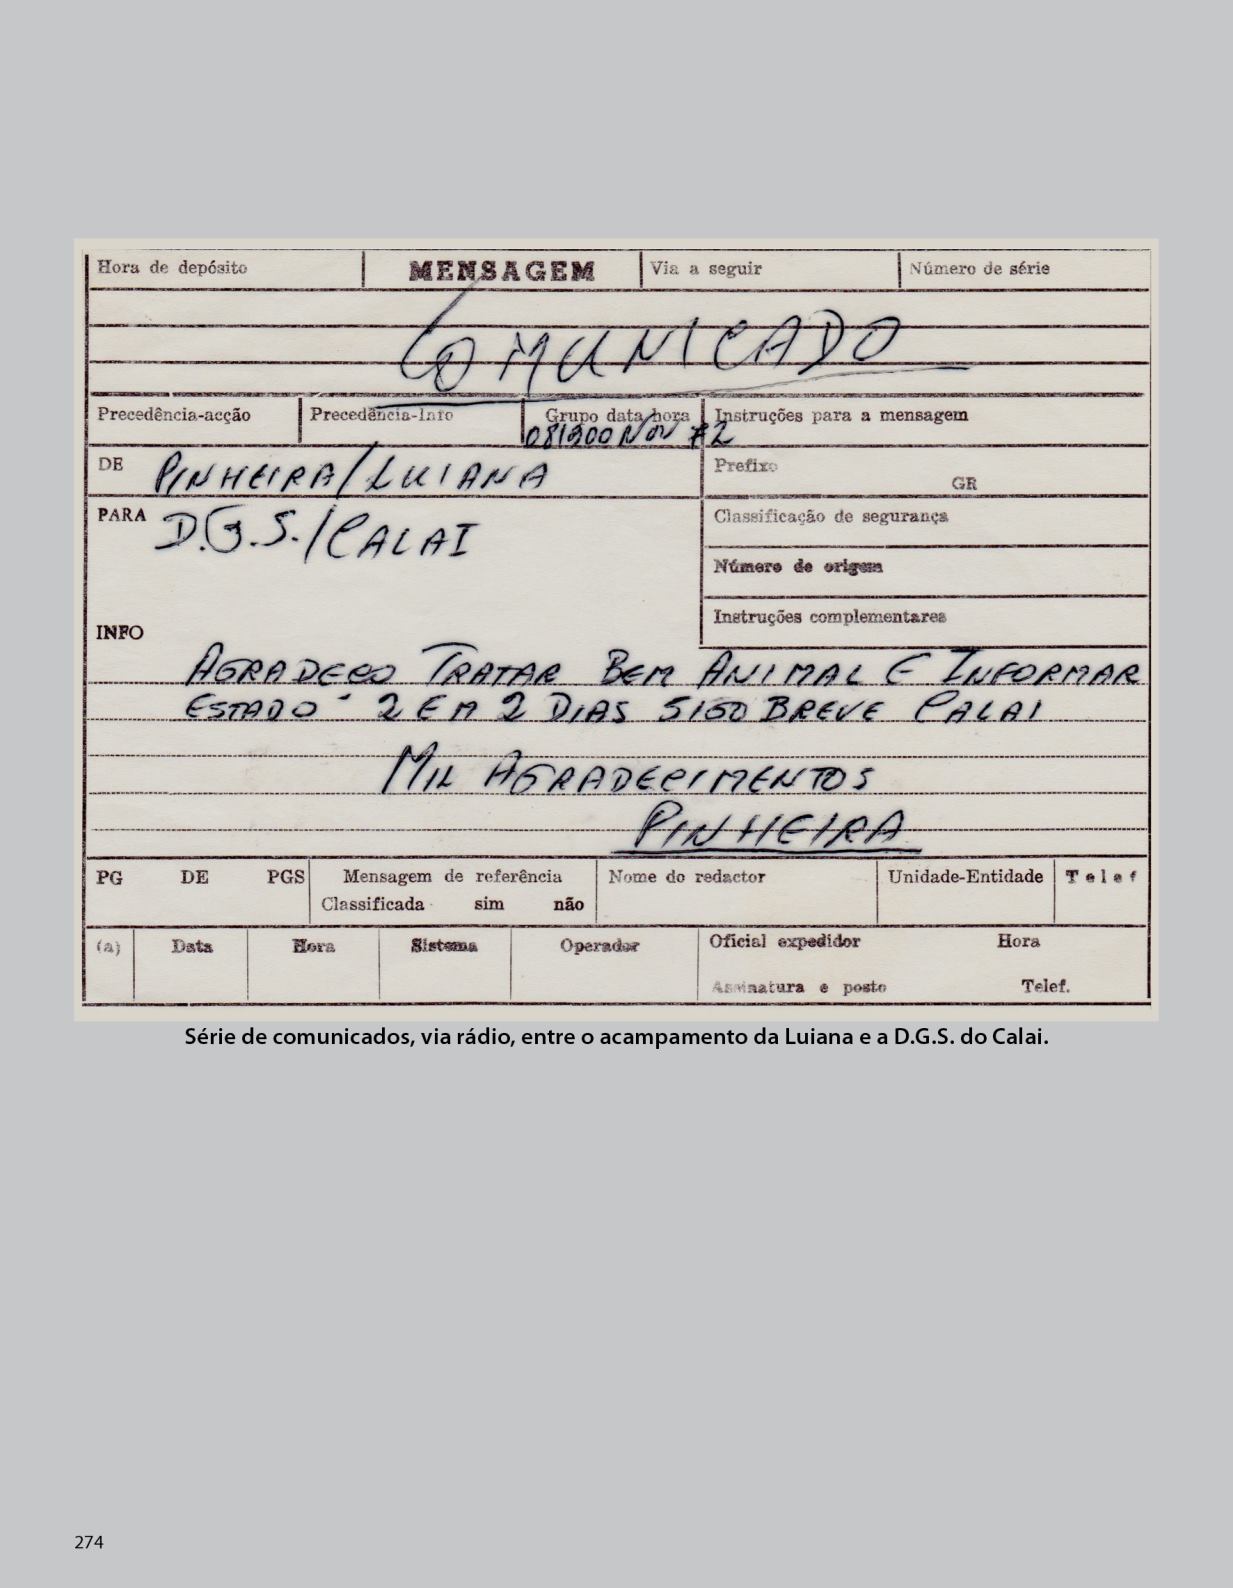 Hora de depósito MENSAGEM Via a seguir Número de série
COMUNICADO
Precedência-acção Precedência-Info Grupo data hora Instruções para a mensagem
081200 NOV 72
DE PINHEIRA/LUIANA Prefixo
GR
PARA D.G.S./CALAI Classificação de segurança
Número de origem
Instruções complementares
INFO
AGRADEÇO TRATAR BEM ANIMAL E INFORMAR
ESTADO - 2 EM 2 DIAS SIGO BREVE CALAI
MIL AGRADECIMENTOS
PINHEIRA
PG DE PGS Mensagem de referência Nome do redactor Unidade-Entidade Telef
Classificada sim não
(a) Data Hora Sistema Operador Oficial expedidor Hora
Assinatura e posto Telef.
Série de comunicados, via rádio, entre o acampamento da Luiana e a D.G.S. do Calai.
274